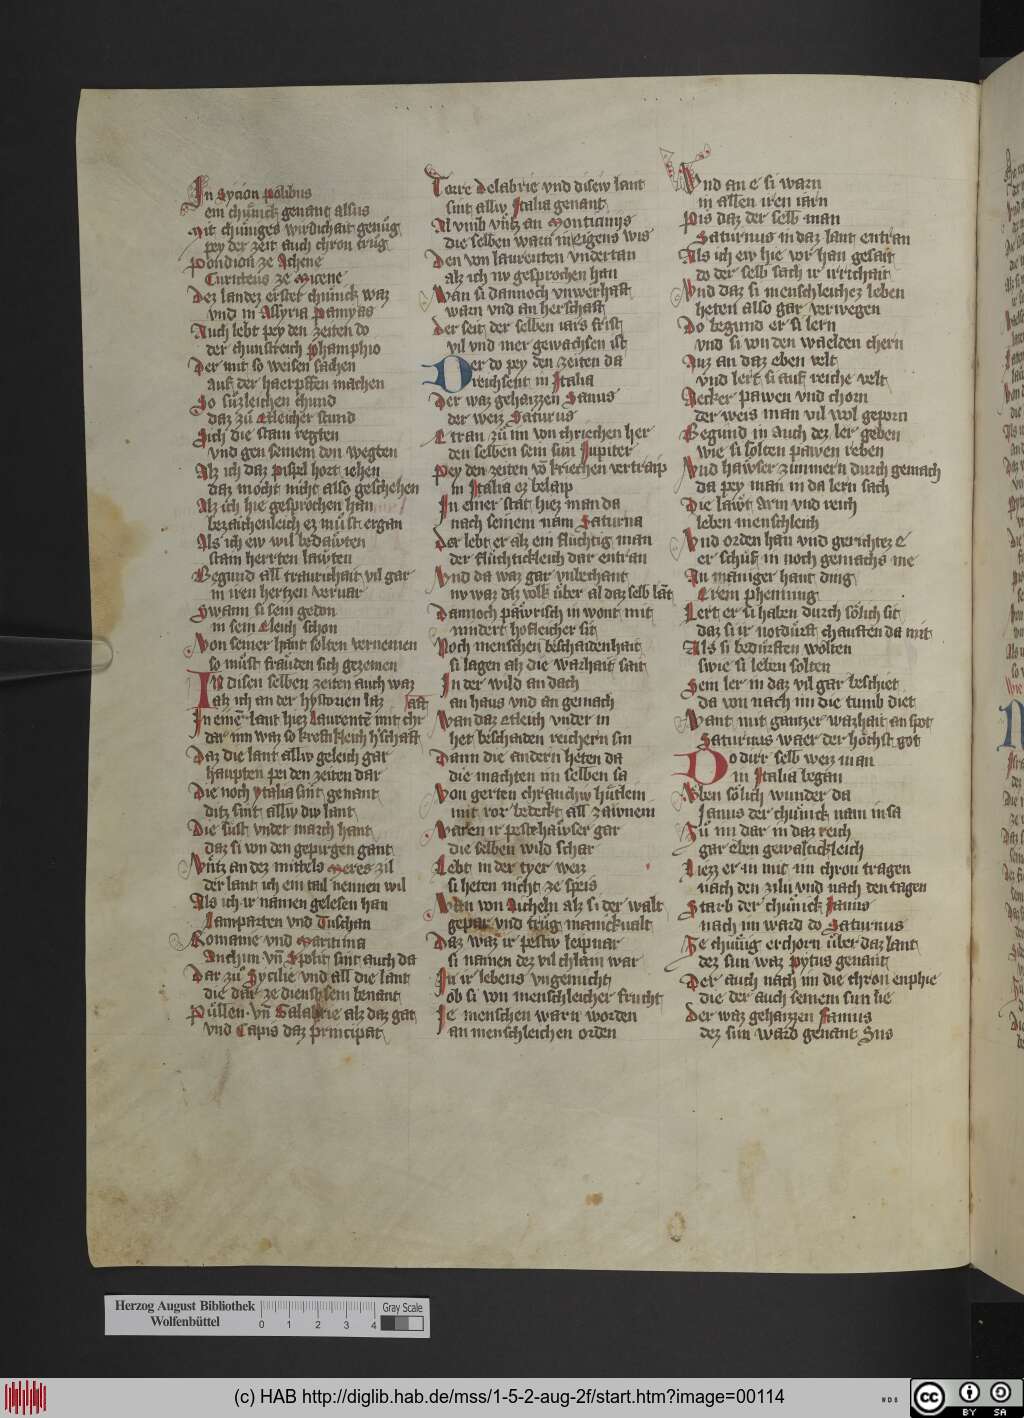 In Sycion Polibus
ein chuͤnick genant alsus
Mit chuͤniges wirdichait genuͦg
pey der zeit auch chron truͦg
Pondion ze Athene
Euristeus ze Micene
Dez landez erster chuͤnck waz
vnd in Assyria Pamyas
Auch lebt pey den zeiten do
der chunstreich Phamphio
Der mit so weisen sachen
auf der haerpffen machen
So suͤzleichen chund
daz zuͦ Etleicher stund
Sich die stain regten
vnd gen seinem don wegten
Alz ich daz pispel hort iehen
daz moͤcht nicht also geschehen
Alz ich hie gesprochen han
bezaichenleich ez muͤst ergan
Als ich ew wil bedaͤwten
stain herrten laͤwten
Begund all trawrichait vil gar
in iren hertzen veruar
Swann si sein gedon
in sein Eleich schon
Von seiner hant solten vernemen
so muͤst fraͤuden sich gezemen
In disen selben zeiten auch waz
alz ich an der hystorien laz
In eine lant hiez Laurente mit chr aft
dar inn waz so kreftikleich h'schaft
Daz die lant allw geleich gar
haupten pei den zeiten dar
Die noch ytalia sint genant
ditz sint allw diw lant
Die sust vnder march hant
daz si von den gepirgen gant
Vntz an dez mittels Meres zil
der lant ich ein tail nennen wil
Als ich ir namen gelesen han
Lamparten vnd Tuschan
Romanie vnd Maritima
Anchun vn Spolit sint auch da
Dar zuͦ Sycilie vnd all die lant
die dar ze dienst sein benant
Puͤllen vn Galabrie alz daz gat
vnd Capis daz principat
Terre Delabrie vnd disew lant
sint allw Italia genant
Al vmb vntz an Monticinys
die selben warn in eigens wis
Den von laurenten vndertan
alz ich iw gesprochen han
Wan si dannoch vnwerhaft
warn vnd an herschaft
Der seit der selben iars frist
vil vnd mer gewachsen ist
Der do pey den zeiten da
reichsent in Italia
Der waz gehaizzen Janus
der weiz Saturus
Etran zuͦ im von chriechen her
den selben sein sun Jupiter
Pey den zeiten vo kriechen vertraip
in Italia ez belaip
In einer stat hiez man da
nach seinem nam Saturna
Der lebt er alz ein fluͤchtig man
der fluͤchtickleich dar entran
Vnd da waz gar vnbechant
nv waz daz volk uͤber al daz selb lat
Dannoch paͤwrisch in wont mit
nindert hofleicher sit
Noch menschen beschaidenhait
si lagen alz die warhait sait
In der wild an dach
an haus vnd an gemach
Wan daz etleich vnder in
het beschaiden reichern sin
Dann die andern heten da
die machten im selben sa
Von gerten chranchw huͤtlein
mit ror bedeckt all zawnein
Waren ir peste haͤwser gar
die selben wild schar
Lebt in der tyer weiz
si heten nicht ze speis
Wan von Aicheln alz si der walt
gepar vnd truͦg manickualt
Daz waz ir pestw leipnar
si namen dez vil chlain war
In ir lebens vngemicht
ob si von menschleicher frucht
Ie menschen warn worden
an menschleichen orden
Vnd an e si warn
in allen iren iarn
Pis daz der selb man
Saturnus in daz lant entran
Als ich ew hie vor han gesait
do der selb sach ir irrichait
Vnd daz si menschleichez leben
heten also gar verwegen
Do begund er si lern
vnd si von den waelden chern
Auz an daz eben velt
vnd lert si auf reiche velt
Aecker pawen vnd chorn
der weis man vil wol geporn
Begund in auch dez ler geben
wie si solten pawen reben
Vnd haͤwser zimmern durch gemach
da pey man in da lern sach
Die laͤwt Arm vnd reich
leben menschleich
Vnd orden han vnd gerichtez e
er schuͦf in noch gemachs me
An maniger hant ding
Erein phenning
Lert er si haben durch soͤlich sit
daz si ir notdurft chauften da mit
Als si bedurften wolten
swie si leben solten
Sein ler in daz vil gar beschiet
da von nach im die tumb diet
Want mit gantzer warhait an spot
Saturnus waer der hoͤchst got
Do dirr selb weiz man
in Italia began
Vben soͤlich wunder da
Janus der chuͤnick nam in sa
Zuͦ im dar in daz reich
gar eben gewaltickleich
Liezz er in mit im chron tragen
nach den ziln vnd nach den tagen
Starb der chuͤnick Janus
nach im ward do Saturnus
Ze chuͤnig erchorn uͤber daz lant
dez sun waz Pytus genant
Der auch nach im die chron enphie
die der auch seinem sun lie
Der waz gehaizzen Faunus
dez sun ward genant Sus
Herzog August Bibliothek
Wolfenbüttel
0 1 2 3 4
Gray Scale
(c) HAB http://diglib.hab.de/mss/1-5-2-aug-2f/start.htm?image=00114
cc BY SA